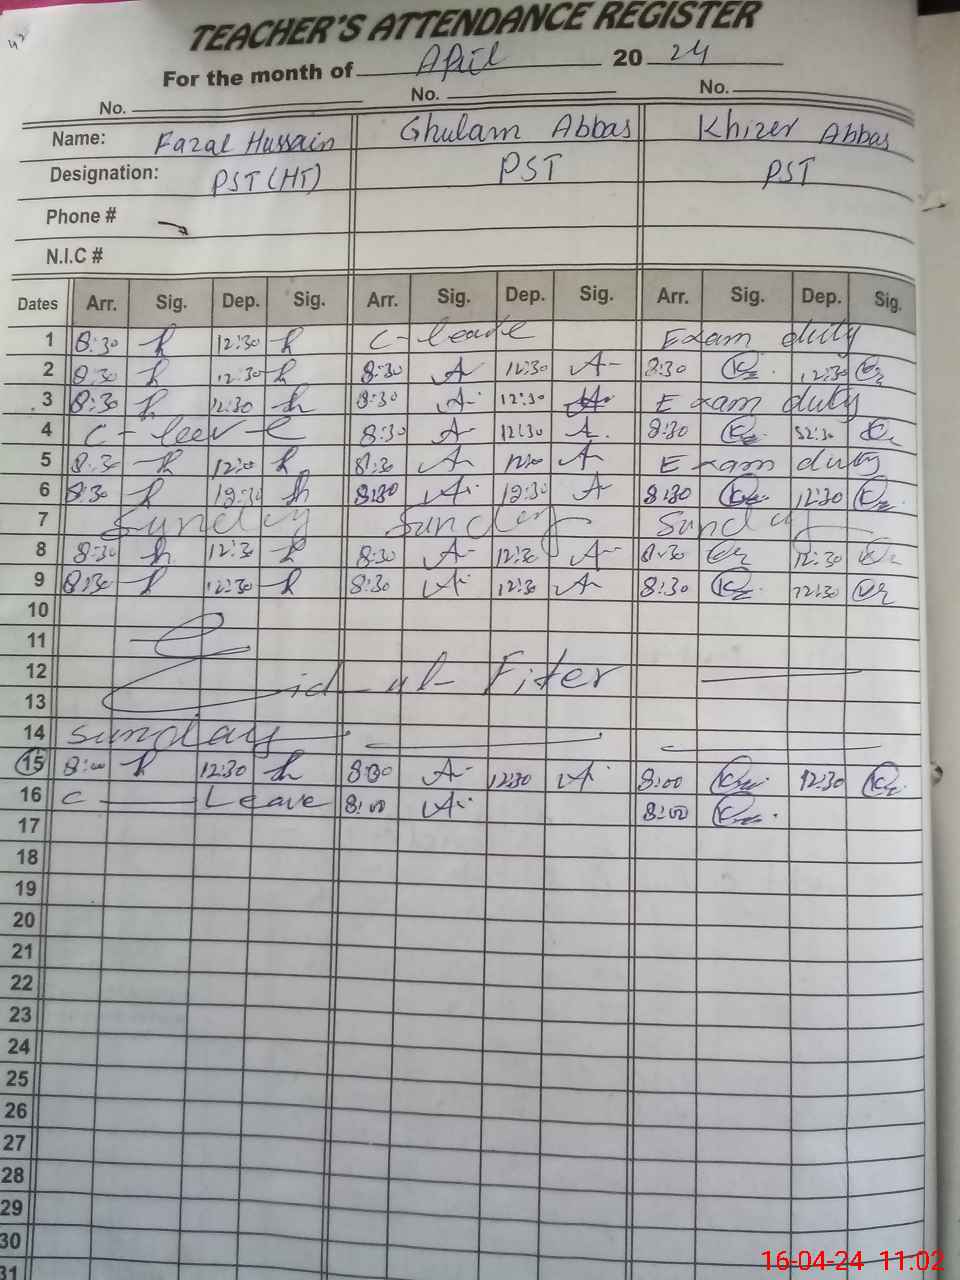 TEACHER'S ATTENDANCE REGISTER
For the month of April 2024
No. No. No.
Name: Fazal Hussain Ghulam Abbas Khizer Abbas
Designation: PST (HT) PST PST
Phone #
N.I.C #
Dates Arr. Sig. Dep. Sig. Arr. Sig. Dep. Sig. Arr. Sig. Dep. Sig.
1 8:30 12:30 C-leave Exam duty
2 8:30 12:30 8:30 12:30 8:30 12:30
3 8:30 12:30 8:30 12:30 Exam duty
4 C-leave 8:30 12:30 8:30 12:30
5 8:30 8:30 Exam duty
6 8:30 12:30 8:30 12:30 8:30 12:30
7 Sunday Sunday Sunday
8 8:30 12:30 8:30 12:30 8:30 12:30
9 8:30 12:30 8:30 12:30 8:30 12:30
10
11
12 Eid-ul-Fiter
13
14 Sunday
15 8:00 12:30 8:00 12:30 8:00 12:30
16 C Leave 8:00 8:00
17
18
19
20
21
22
23
24
25
26
27
28
29
30
31
16-04-24 11:02